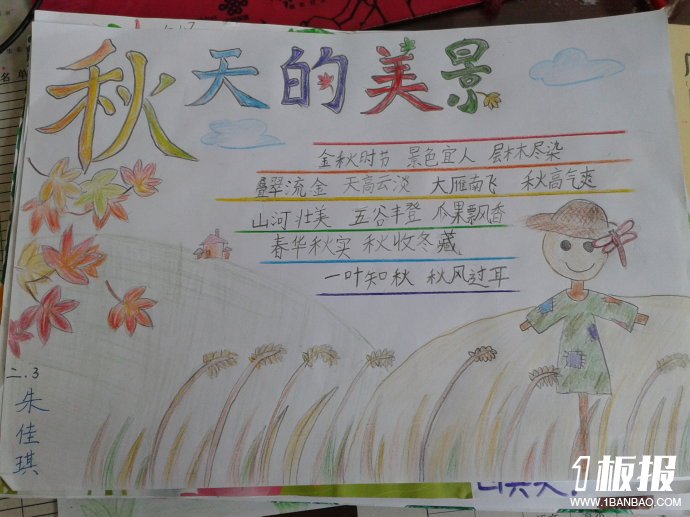 秋天的美景
金秋时节 景色宜人 层林尽染
叠翠流金 天高云淡 大雁南飞 秋高气爽
山河壮美 五谷丰登 瓜果飘香
春华秋实 秋收冬藏
一叶知秋 秋风过耳
二.3
朱佳琪
1板报
WWW.1BANBAO.COM